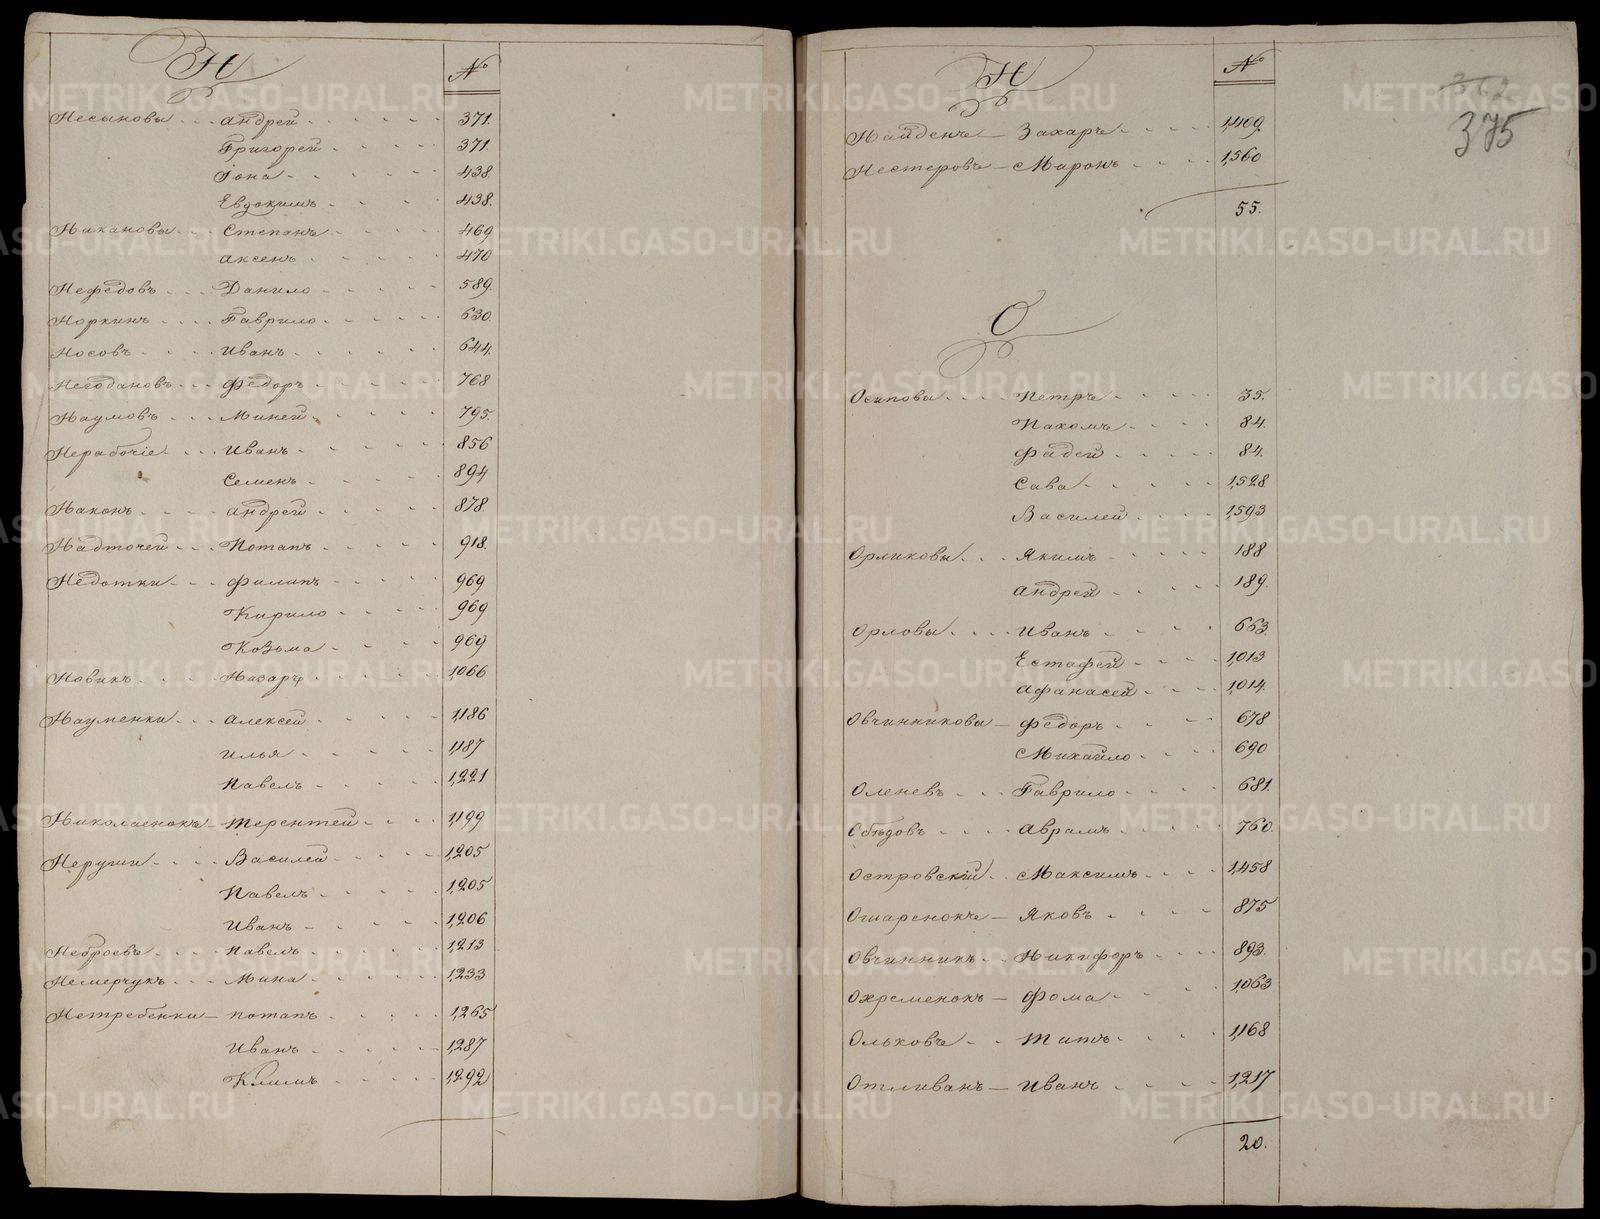 Н №
Несыновы Андрей 371.
Григорей 371.
Іона 438.
Евдокимъ 438.
Никановы Степанъ 469
Аксенъ 470
Нефедовъ Данило 589.
Норкинъ Гаврило 630
Носовъ Иванъ 644.
Негодановъ Федоръ 768
Наумовъ Миней 795.
Нерабочіе Иванъ 856
Семенъ 894
Наконъ Андрей 878
Надточей Потапъ 918.
Недотки Филипъ 969
Кирило 969
Козьма 969
Новикъ Назаръ 1,066
Науменки Алексей 1,186
Илья 1,187
Павелъ 1,221
Николаенокъ Терентей 1,199
Неруши Василей 1,205
Павелъ 1,205
Иванъ 1,206
Павелъ 1,213
Немерчукъ Мина 1,233
Нетребенки Потапъ 1,265
Иванъ 1,287
Климъ 1,292
Н №
375
Найденъ Захаръ 1,409.
Нестеровъ Миронъ 1,560
55.
О
Осиповы Петръ 35.
Пахомъ 84.
Фадей 84.
Сава 1,528
Василей 1,593
Орликовы Якимъ 188
Андрей 189.
Орловы Иванъ 663.
Естафей 1,013
Афанасей 1,014.
Овчинниковы Федоръ 678
Михайло 690
Оленевъ Гаврило 681.
Обѣдовъ Аврамъ 760.
Островскій Максимъ 1,458
Ошаренокъ Яковъ 875
Овчинникъ Никифоръ 893.
Охременокъ Фома 1,063
Ольховъ Титъ 1,168
Отливанъ Иванъ 1,217
20.
METRIKI.GASO-URAL.RU